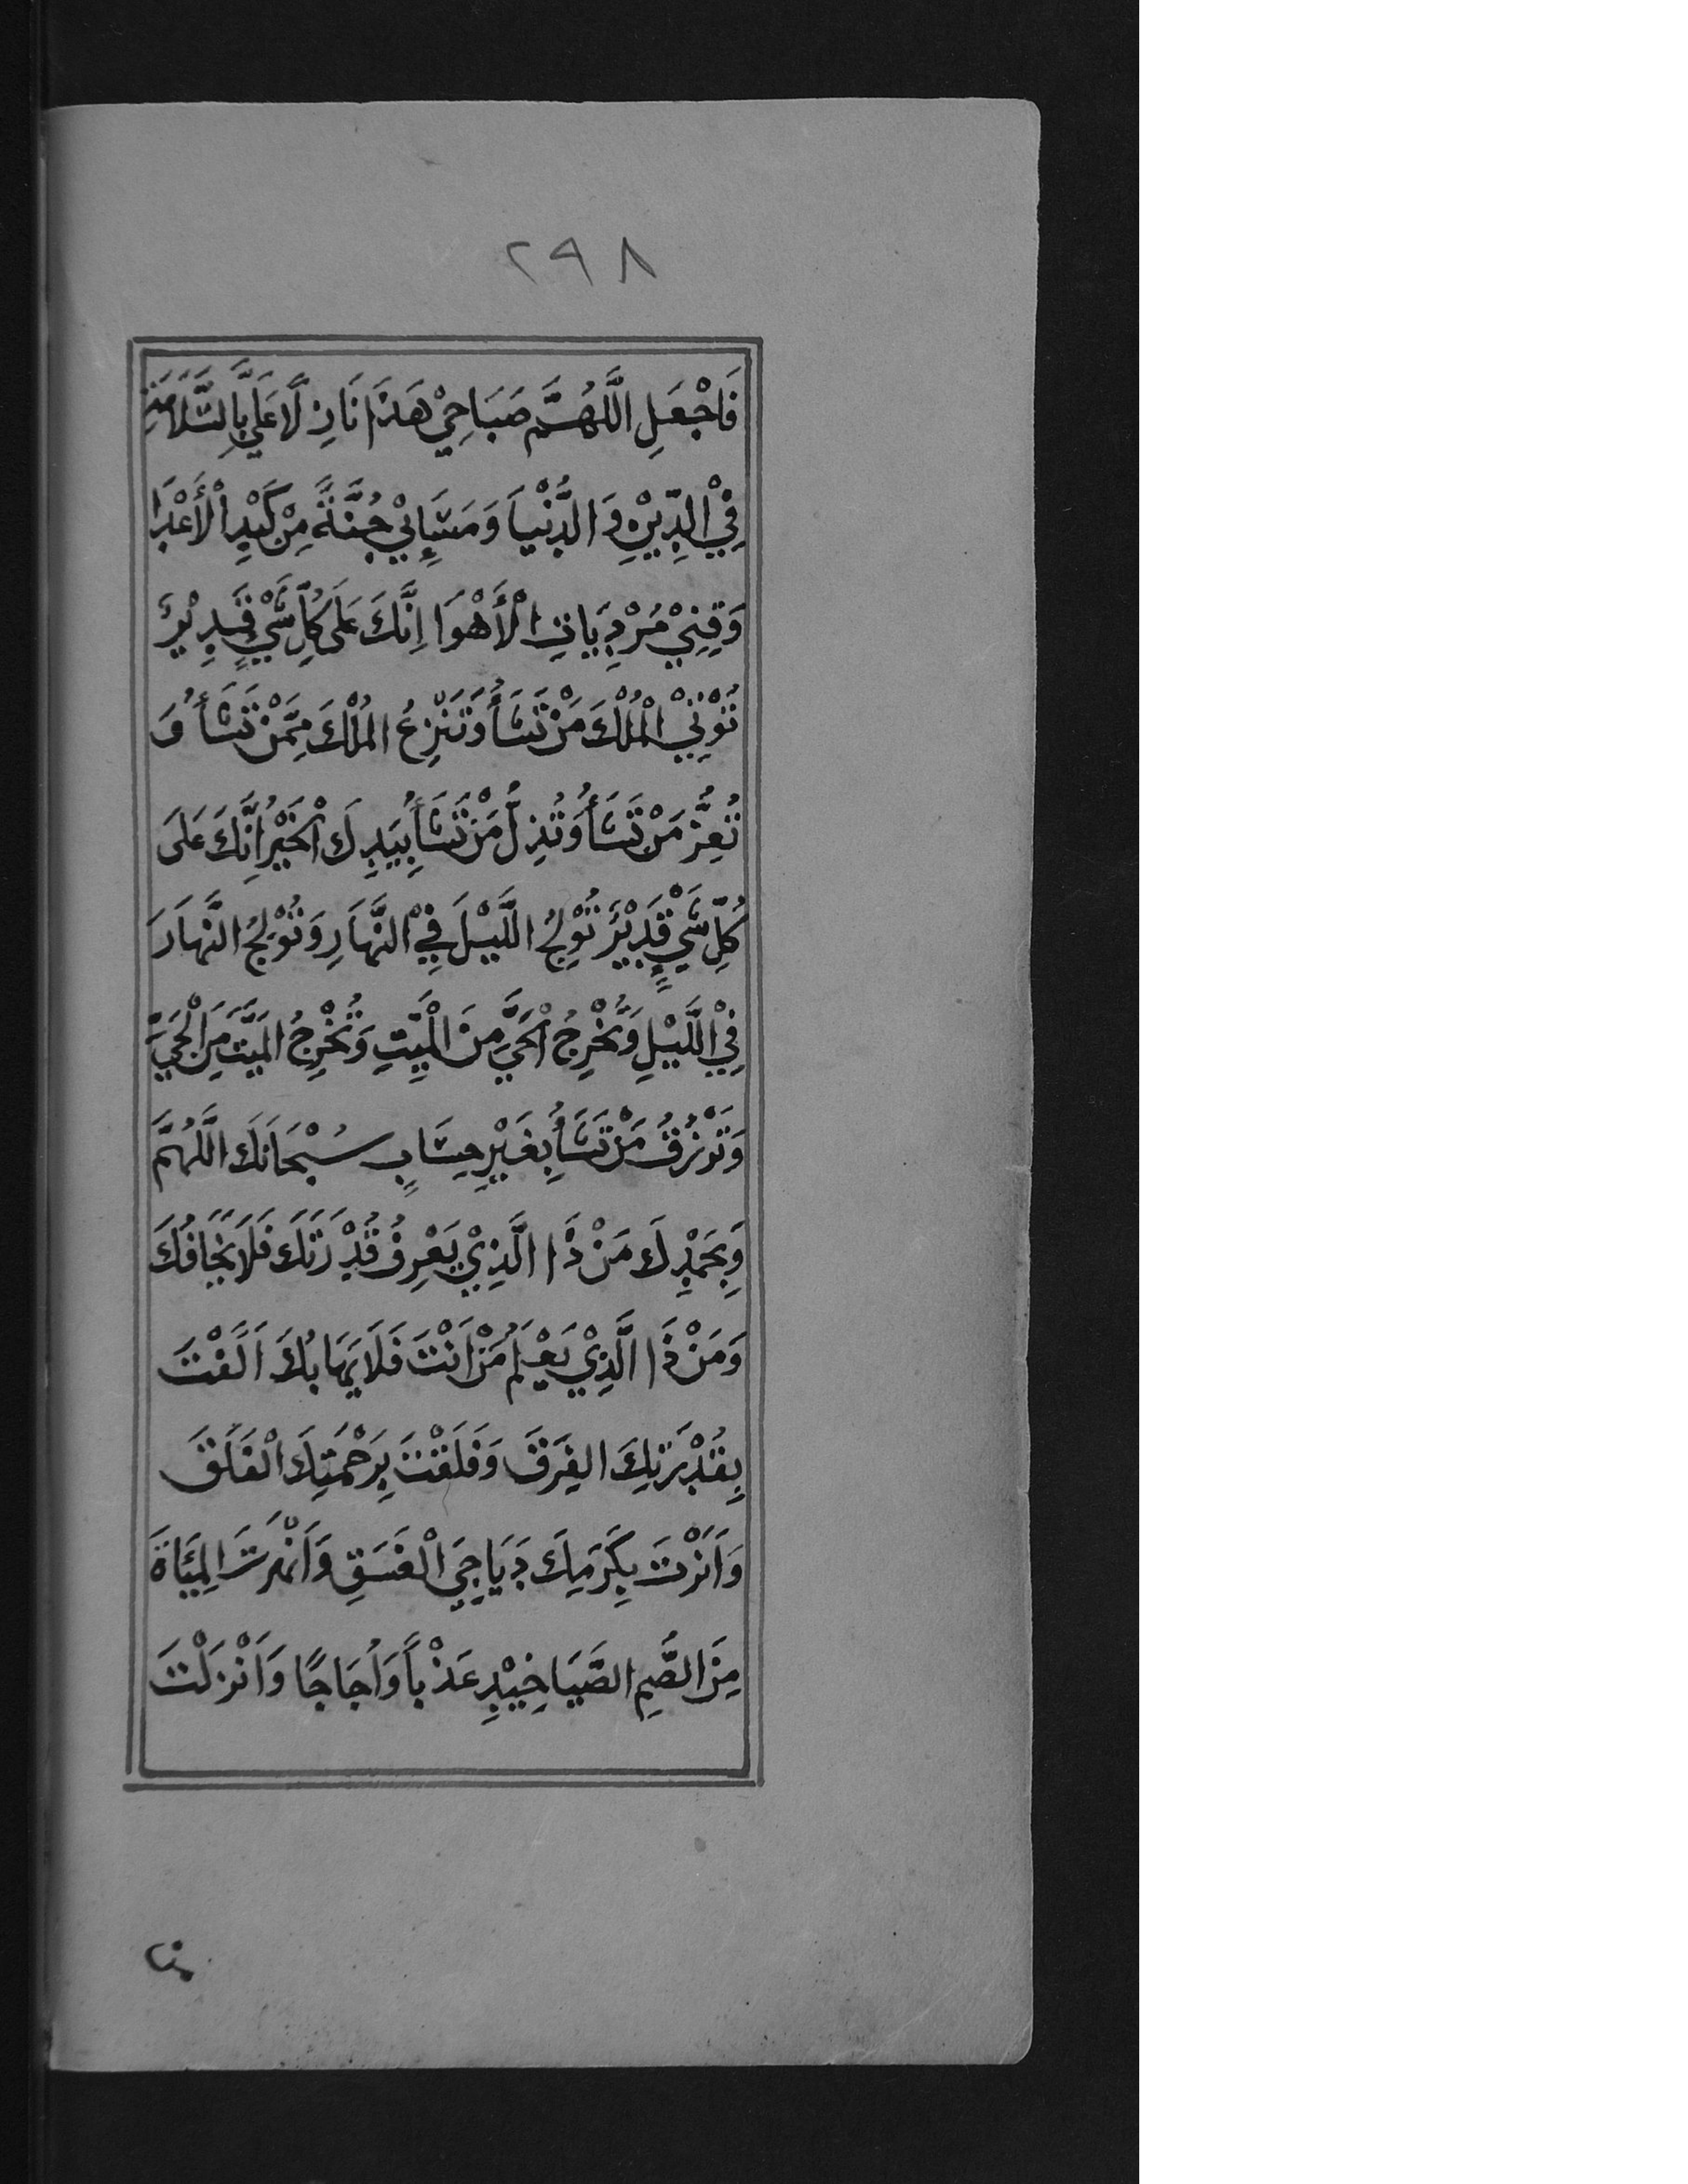 ٢٩٨
فَاجْعَلِ اللَّهُمَّ صَبَاحِيْ هَذَا نَازِلًا عَلَيَّ بِالسَّلَامَةِ
فِيْ الدِّيْنِ وَالدُّنْيَا وَمَسَائِيْ جُنَّةً مِنْ كَيْدِ الْأَعْدَا
وَقِنِيْ مُرْدِيَاتِ الْأَهْوَا اِنَّكَ عَلَى كُلِّ شَيْءٍ قَدِيْرٌ
تُؤْتِيْ الْمُلْكَ مَنْ تَشَأُ وَتَنْزِعُ الْمُلْكَ مِمَّنْ تَشَأُ وَ
تُعِزُّ مَنْ تَشَأُ وَتُذِلُّ مَنْ تَشَأُ بِيَدِكَ الْخَيْرُ اِنَّكَ عَلَى
كُلِّ شَيْءٍ قَدِيْرٌ تُوْلِجُ اللَّيْلَ فِيْ النَّهَارِ وَتُوْلِجُ النَّهَارَ
فِيْ اللَّيْلِ وَتُخْرِجُ الْحَيَّ مِنَ الْمَيِّتِ وَتُخْرِجُ الْمَيِّتَ مِنَ الْحَيِّ
وَتَرْزُقُ مَنْ تَشَأُ بِغَيْرِ حِسَابٍ سُبْحَانَكَ اللَّهُمَّ
وَبِحَمْدِكَ مَنْ ذَا الَّذِيْ يَعْرِفُ قُدْرَتَكَ فَلَا يَخَافُكَ
وَمَنْ ذَا الَّذِيْ يَعْلَمُ مَنْ اَنْتَ فَلَا يَهَابُكَ اَلَّفْتَ
بِقُدْرَتِكَ الْفِرَقَ وَفَلَقْتَ بِرَحْمَتِكَ الْفَلَقَ
وَاَنَرْتَ بِكَرَمِكَ دَيَاجِيَ الْغَسَقِ وَاَنْهَرْتَ الْمِيَاهَ
مِنَ الصُّمِّ الصَّيَاخِيْدِ عَذْبًا وَاُجَاجًا وَاَنْزَلْتَ